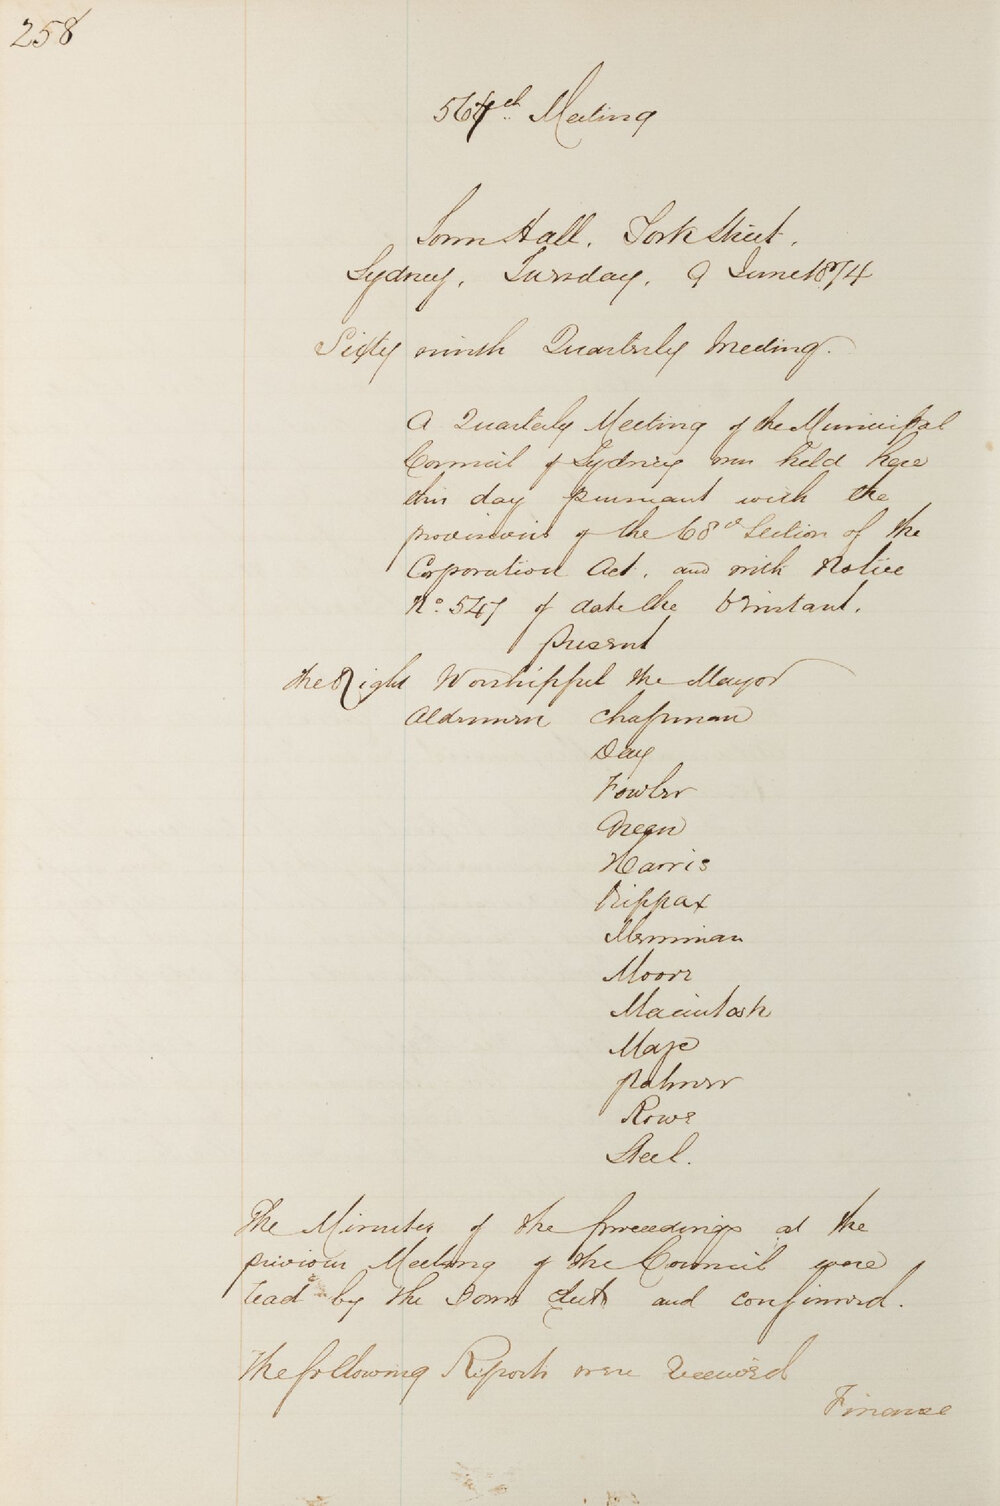 258
564th Meeting
Town Hall, York Street,
Sydney, Tuesday, 9 June 1874
Sixty ninth Quarterly Meeting.
A Quarterly Meeting of the Municipal
Council of Sydney was held here
this day pursuant with the
provisions of the 68th Section of the
Corporation Act, and with Notice
No. 547 of date the instant.
Present
The Right Worshipful the Mayor
Aldermen Chapman
Day
Fowler
Green
Harris
Kippax
Merriman
Moore
Macintosh
Maze
Palmer
Rowe
Steel.
The Minutes of the proceedings at the
previous Meeting of the Council were
read by the Town Clerk and confirmed.
The following Reports were received
Finance